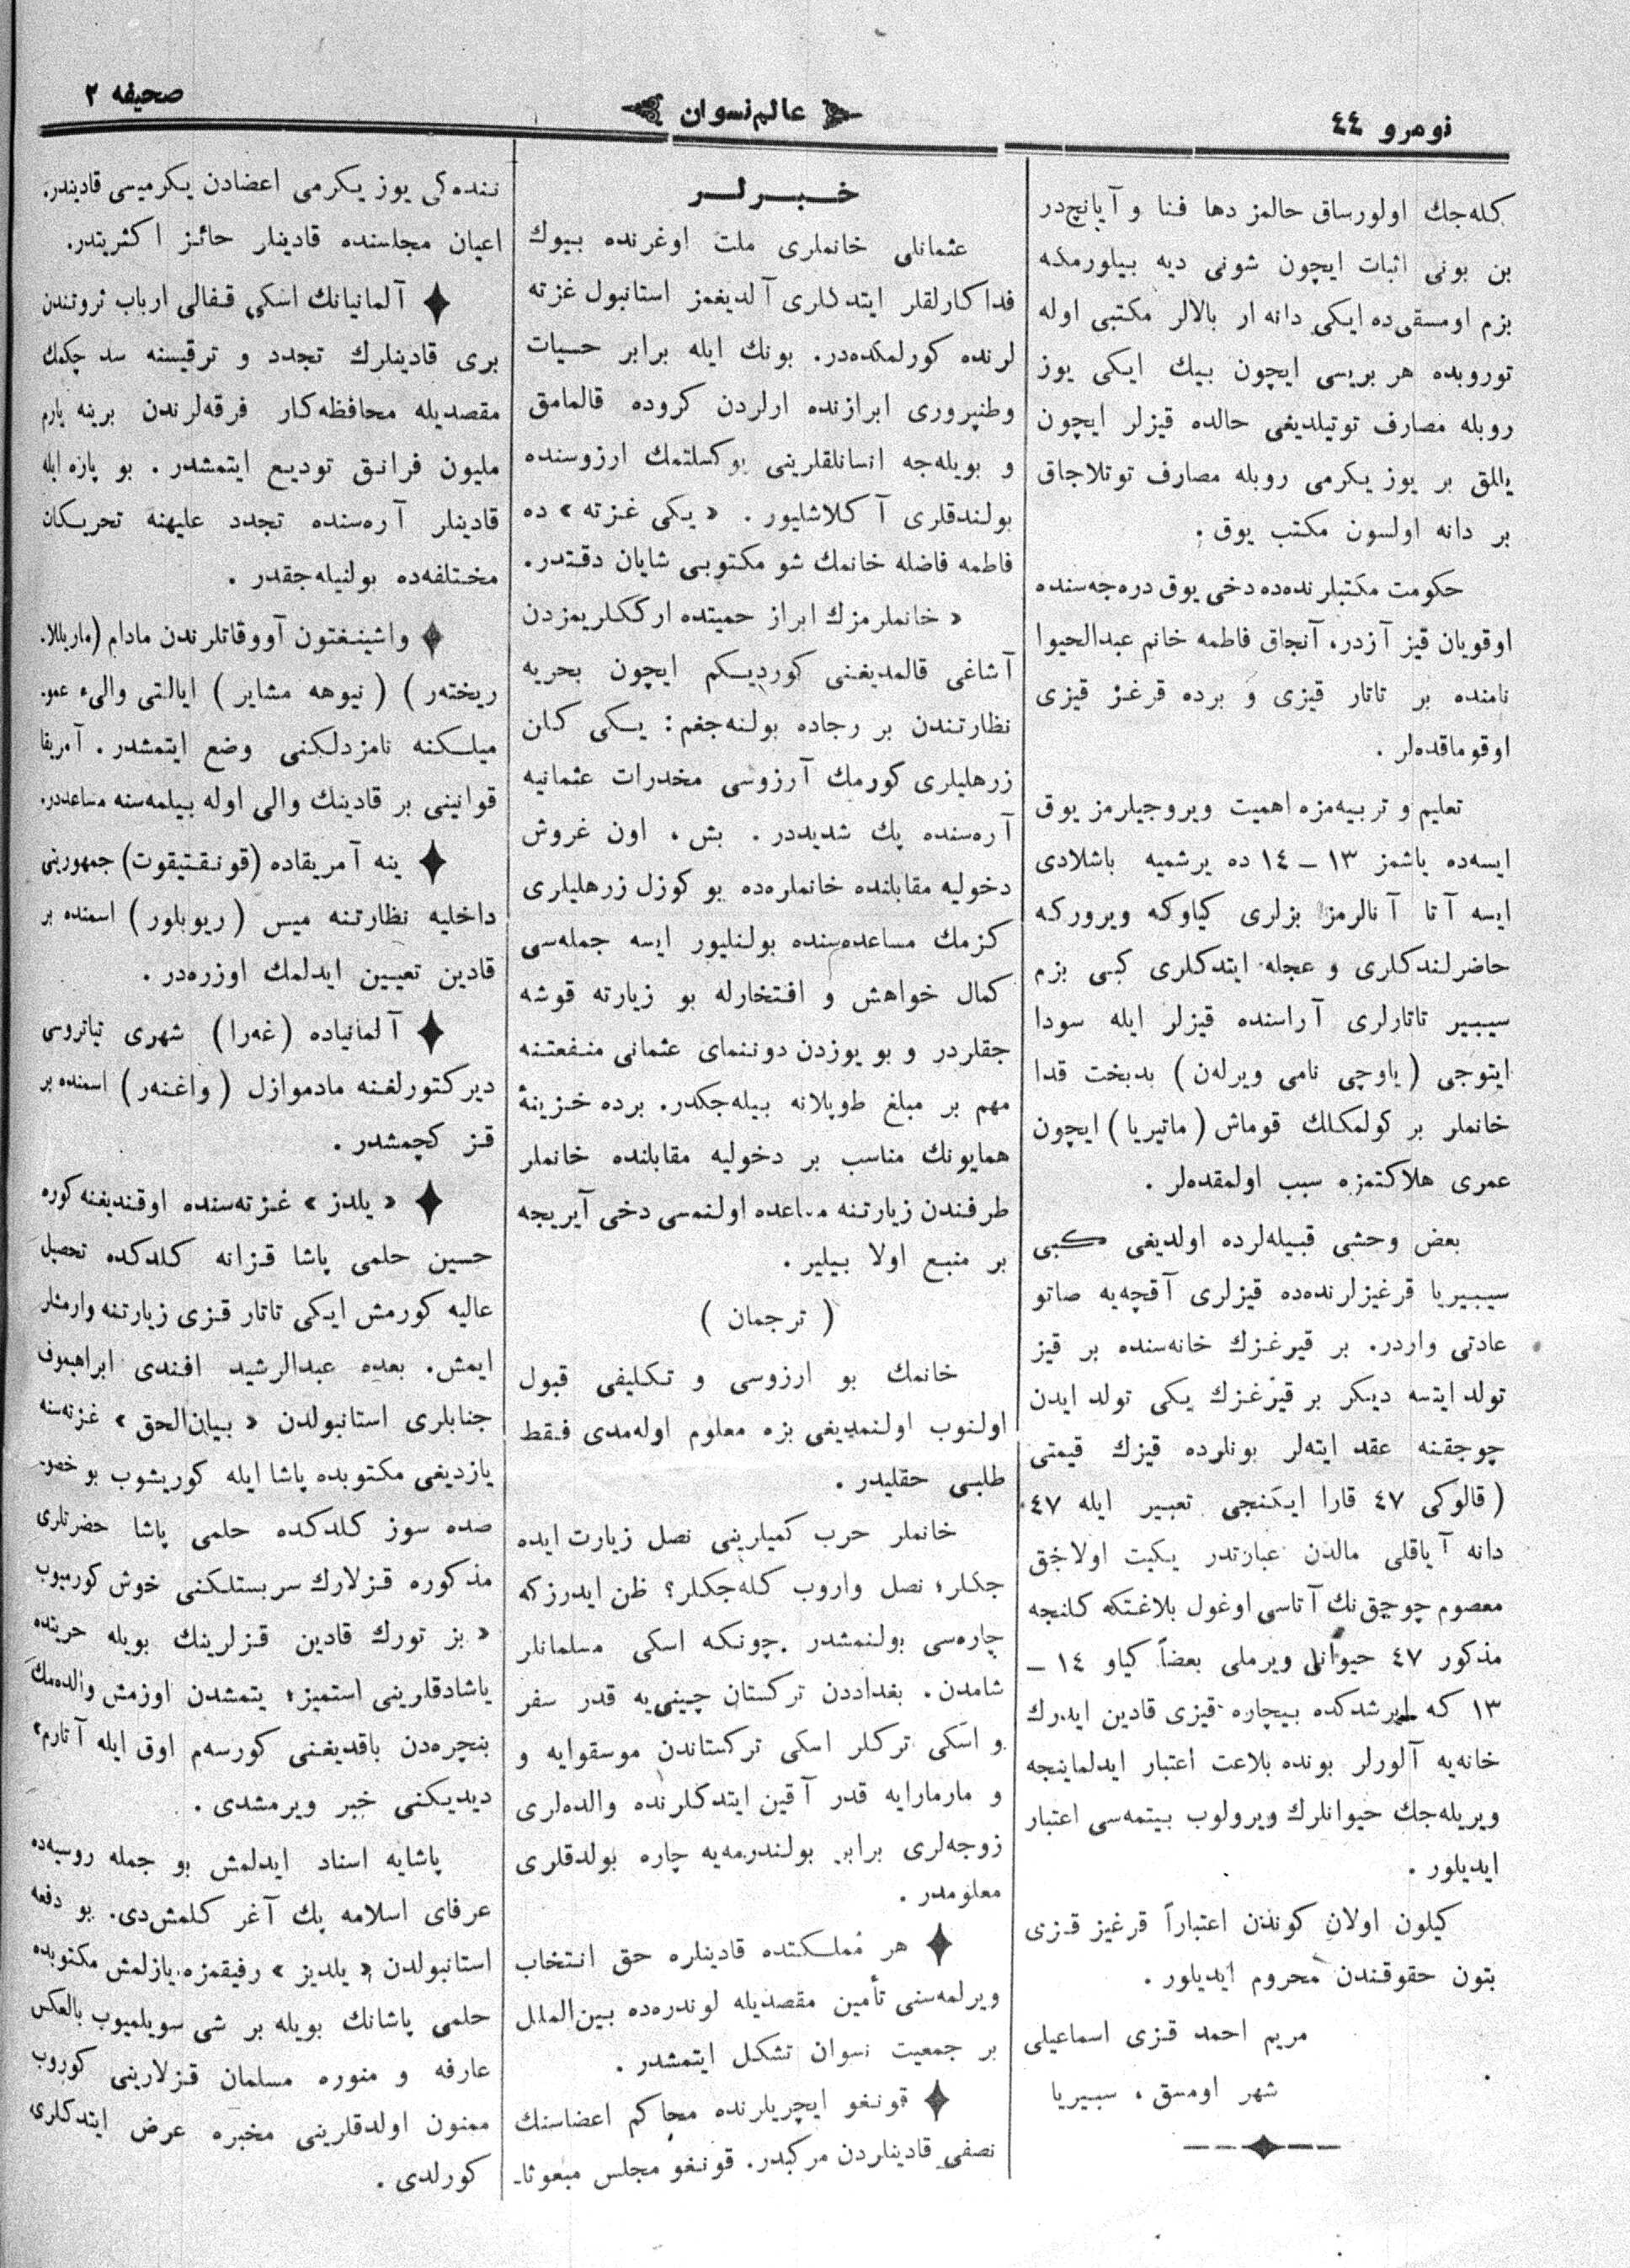 نومرو ٤٤
عالم نسوان
صحيفه ٢
كله‌جك اولورساق حالمز دها فنا و آيانچ‌در
بن بونى اثبات ايچون شونى ديه بيلورمكه
بزم اومسقى‌ده ايكى دانه ار بالالر مكتبى اوله
توروبده هر بريسى ايچون بيك ايكى يوز
روبله مصارف توتيلديغى حالده قيزلر ايچون
يللق بر يوز يكرمى روبله مصارف توتلاجاق
بر دانه اولسون مكتب يوق.
حكومت مكتبلرنده‌ده دخى يوق دره‌جه‌سنده
اوقويان قيز آزدر، آنجاق فاطمه خانم عبدالحيوا
نامنده بر تاتار قيزى و برده قرغز قيزى
اوقوماقده‌لر.
تعليم و تربيه‌مزه اهميت ويروجيلرمز يوق
ايسه‌ده ياشمز ١٣ — ١٤ ده يرشميه باشلادى
ايسه آتا آنالرمز بزلرى كياوكه ويروركه
حاضرلندكلرى و عجله ايتدكلرى كبى بزم
سيبير تاتارلرى آراسنده قيزلر ايله سودا
ايتوجى (ياوچى نامى ويرله‌ن) بدبخت قدا
خانملر بر كولمكلك قوماش (ماتيريا) ايچون
عمرى هلاكتمزه سبب اولمقده‌لر.
بعض وحشى قبيله‌لرده اولديغى كبى
سيبيريا قرغيزلرنده‌ده قيزلرى آقچه‌يه صاتو
عادتى واردر. بر قيرغزك خانه‌سنده بر قيز
تولد ايتسه ديكر بر قيرغزك يكى تولد ايدن
چوجقنه عقد ايته‌لر بونلرده قيزك قيمتى
(قالوكى ٤٧ قارا ايكنجى تعبير ايله ٤٧
دانه آياقلى مالدن عبارتدر يكيت اولاجق
معصوم چوجق‌نك آتاسى اوغول بلاغتكه كلنجه
مذكور ٤٧ حيوانى ويرملى بعضاً كياو ١٤ —
١٣ كه يرشدكده بيچاره قيزى قادين ايدرك
خانه‌يه آلورلر بونده بلاعت اعتبار ايدلماينجه
ويريله‌جك حيوانلرك ويرولوب بيتمه‌سى اعتبار
ايديلور.
كيلون اولان كوندن اعتباراً قرغيز قزى
بتون حقوقندن محروم ايديلور.
مريم احمد قزى اسماعيلى
شهر اومسق، سيبيريا
خبرلر
عثمانلى خانملرى ملت اوغرنده بيوك
فداكارلقلر ايتدكلرى آلديغمز استانبول غزته
لرنده كورلمكده‌در. بونك ايله برابر حسيات
وطنپرورى ابرازنده ارلردن كروده قالمامق
و بويله‌جه انسانلقلرينى يوكسلتمك ارزوسنده
بولندقلرى آكلاشليور. «يكى غزته» ده
فاطمه فاضله خانمك شو مكتوبى شايان دقتدر.
«خانملرمزك ابراز حميتده ارككلريمزدن
آشاغى قالمديغنى كورديكم ايچون بحريه
نظارتندن بر رجاده بولنه‌جغم: يكى كلن
زرهليلرى كورمك آرزوسى مخدرات عثمانيه
آره‌سنده پك شديددر. بش، اون غروش
دخوليه مقابلنده خانملره‌ده بو كوزل زرهليلرى
كزمك مساعده‌سنده بولنليور ايسه جمله‌سى
كمال خواهش و افتخارله بو زيارته قوشه
جقلردر و بو يوزدن دوننماى عثمانى منفعتنه
مهم بر مبلغ طوپلانه بيله‌جكدر. برده خزينهٔ
همايونك مناسب بر دخوليه مقابلنده خانملر
طرفندن زيارتنه مساعده اولنمسى دخى آيريجه
بر منبع اولا بيلير.
(ترجمان)
خانمك بو ارزوسى و تكليفى قبول
اولنوب اولنمديغى بزه معلوم اوله‌مدى فقط
طلبى حقليدر.
خانملر حرب كميلرينى نصل زيارت ايده
جكلر؛ نصل واروب كله‌جكلر؟ ظن ايدرزكه
چاره‌سى بولنمشدر. چونكه اسكى مسلمانلر
شامدن. بغداددن تركستان چينى‌يه قدر سفر
و اسكى تركلر اسكى تركستاندن موسقوايه و
و مارمارايه قدر آقين ايتدكلرنده والده‌لرى
زوجه‌لرى برابر بولندرمه‌يه چاره بولدقلرى
معلومدر.
هر مملكتده قادينلره حق انتخاب
ويرلمه‌سنى تأمين مقصديله لوندره‌ده بين‌الملل
بر جمعيت نسوان تشكل ايتمشدر.
قونغو ايچريلرنده محاكم اعضاسنك
نصفى قادينلردن مركبدر. قونغو مجلس مبعوثا-
ننده‌كى يوز يكرمى اعضادن يكرميسى قاديندر.
اعيان مجلسنده قادينلر حائز اكثريتدر.
آلمانيانك اسكى قفالى ارباب ثروتندن
برى قادينلرك تجدد و ترقيسنه سد چكمك
مقصديله محافظه‌كار فرقه‌لرندن برينه يارم
مليون فرانق توديع ايتمشدر. بو پاره ايله
قادينلر آره‌سنده تجدد عليهنه تحريكات
مختلفه‌ده بولنيله‌جقدر.
واشينغتون آووقاتلرندن مادام (ماريللا.
ريخته‌ر) (نيوهه مشاير) ايالتى والىء عمو.
ميلكنه نامزدلكنى وضع ايتمشدر. آمريقا
قوانينى بر قادينك والى اوله بيلمه‌سنه مساعددر.
ينه آمريقاده (قونقتيقوت) جمهورينى
داخليه نظارتنه ميس (ريوبلور) اسمنده بر
قادين تعيين ايدلمك اوزره‌در.
آلمانياده (غه‌را) شهرى تياتروسى
ديركتورلغنه مادموازل (واغنه‌ر) اسمنده بر
قز كچمشدر.
«يلدز» غزته‌سنده اوقنديغنه كوره
حسين حلمى پاشا قزانه كلدكده تحصيل
عاليه كورمش ايكى تاتار قزى زيارتنه وارمشلر
ايمش. بعده عبدالرشيد افندى ابراهيموف
جنابلرى استانبولدن «بيان‌الحق» غزته‌سنه
يازديغى مكتوبده پاشا ايله كوريشوب بو خصو-
صده سوز كلدكده حلمى پاشا حضرتلرى
مذكوره قزلارك سربستلكنى خوش كورميوب
«بز تورك قادين قزلرينك بويله حريتده
ياشادقلرينى استميز؛ يتمشدن اوزمش والده‌مك
پنچره‌دن باقديغنى كورسه‌م اوق ايله آتارم»
ديديكنى خبر ويرمشدى.
پاشايه اسناد ايدلمش بو جمله روسيه‌ده
عرفاى اسلامه پك آغر كلمش‌دى. بو دفعه
استانبولدن «يلديز» رفيقمزه يازلمش مكتوبده
حلمى پاشانك بويله بر شى سويلميوب بالعكس
عارفه و منوره مسلمان قزلارينى كوروب
ممنون اولدقلرينى مخبره عرض ايتدكلرى
كورلدى.